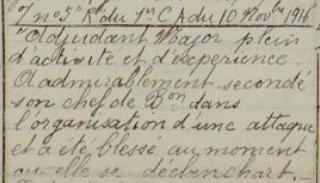 n°5" R^t du 1^er C A du 10 Nov^bre 1916
"Adjudant Major plein
d'activité et d'expérience
A admirablement secondé
son chef de B^on dans
l'organisation d'une attaque
et a été blessé au moment
où elle se déclenchait. _